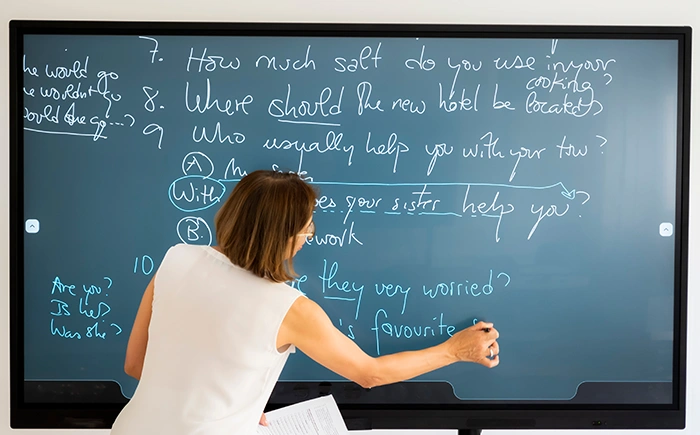 he would go
he wouldn't go
would she go...?
7. How much salt do you use in your cooking?
8. Where should the new hotel be located?
9 Who usually help you with your tow?
A
With es your sister help you?
B. ework
10 they very worried?
's favourite
Are you?
Is he?
Was she?